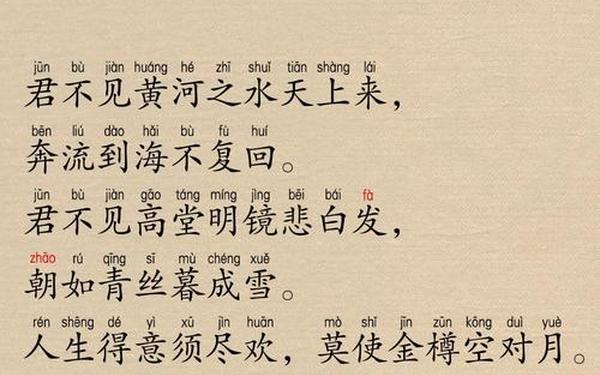 jūn bù jiàn huáng hé zhī shuǐ tiān shàng lái
君不见黄河之水天上来，
bēn liú dào hǎi bù fù huí
奔流到海不复回。
jūn bù jiàn gāo táng míng jìng bēi bái fà
君不见高堂明镜悲白发，
zhāo rú qīng sī mù chéng xuě
朝如青丝暮成雪。
rén shēng dé yì xū jìn huān mò shǐ jīn zūn kōng duì yuè
人生得意须尽欢，莫使金樽空对月。